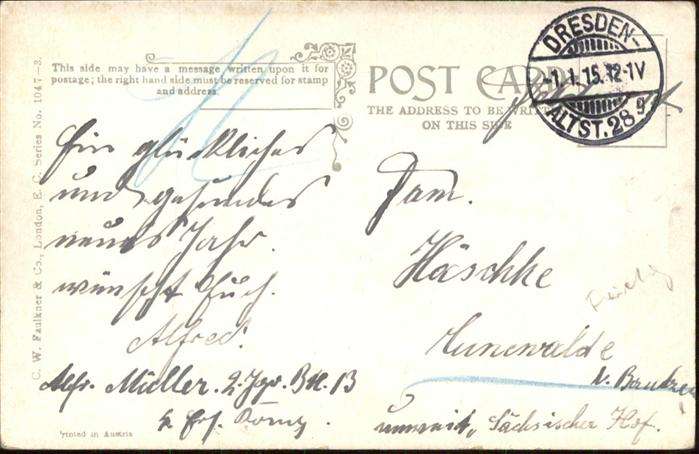 This side may have a message written upon it for
postage; the right hand side must be reserved for stamp
and address.
C. W. Faulkner & Co., London, E. C. Series No. 1047-3.
Ein glückliches
und gesundes
neues Jahr
wünscht Euch.
Alfred.
Alfr. Müller. 2. Jgr. Btl. 13
Printed in Austria
POST CARD
THE ADDRESS TO BE WRITTEN
ON THIS SIDE
DRESDEN-
-1. 1. 15. 12-1V
ALTST. 28 g
Fam.
Häschke
Cunewalde
b. Bautzen
Sächsischer Hof.